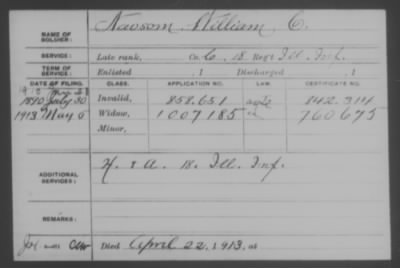 NAME OF SOLDIER: Navsom, William C.
SERVICE: Late rank, Co. C, 18 Reg't Ill. Inf.
TERM OF SERVICE: Enlisted , 1 Discharged , 1
DATE OF FILING. CLASS. APPLICATION NO. LAW. CERTIFICATE NO.
1890 July 30 Invalid, 858.651 842.314
1913 May 5 Widow, 1007185 760675
Minor,
ADDITIONAL SERVICES: F. & A. 18. Ill. Inf.
REMARKS:
Died April 22, 1913, at